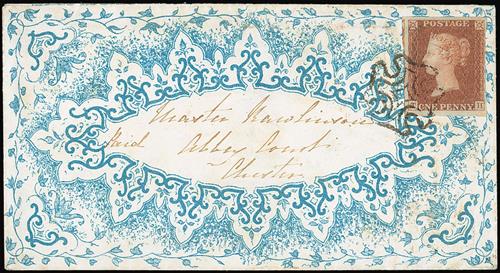 POSTAGE
ONE PENNY
H
Master Rawlinson
Paid Abbey Court
Chester